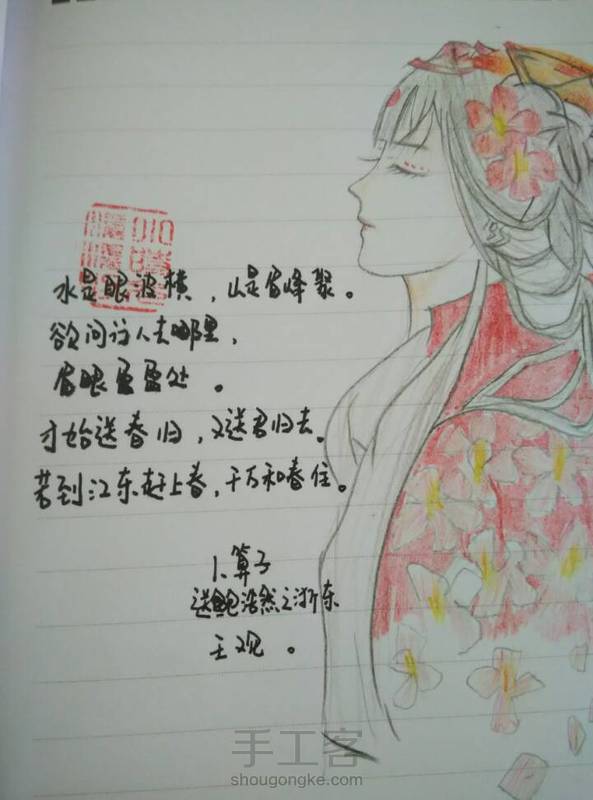 水是眼波横，山是眉峰聚。
欲问行人去哪里，
眉眼盈盈处。
才始送春归，又送君归去。
若到江东赶上春，千万和春住。
卜算子
送鲍浩然之浙东
王观。
手工客
shougongke.com